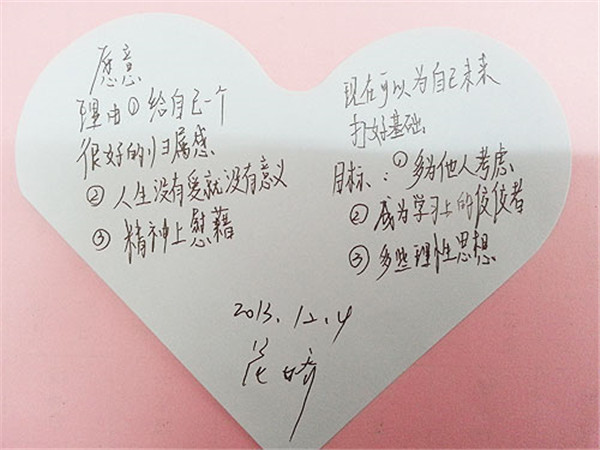 愿意
理由①给自己一个
很好的归属感
②人生没有爱就没有意义
③精神上慰藉
现在可以为自己未来
打好基础
目标：①多为他人考虑
②成为学习上的佼佼者
③多些理性思想
2013.12.4